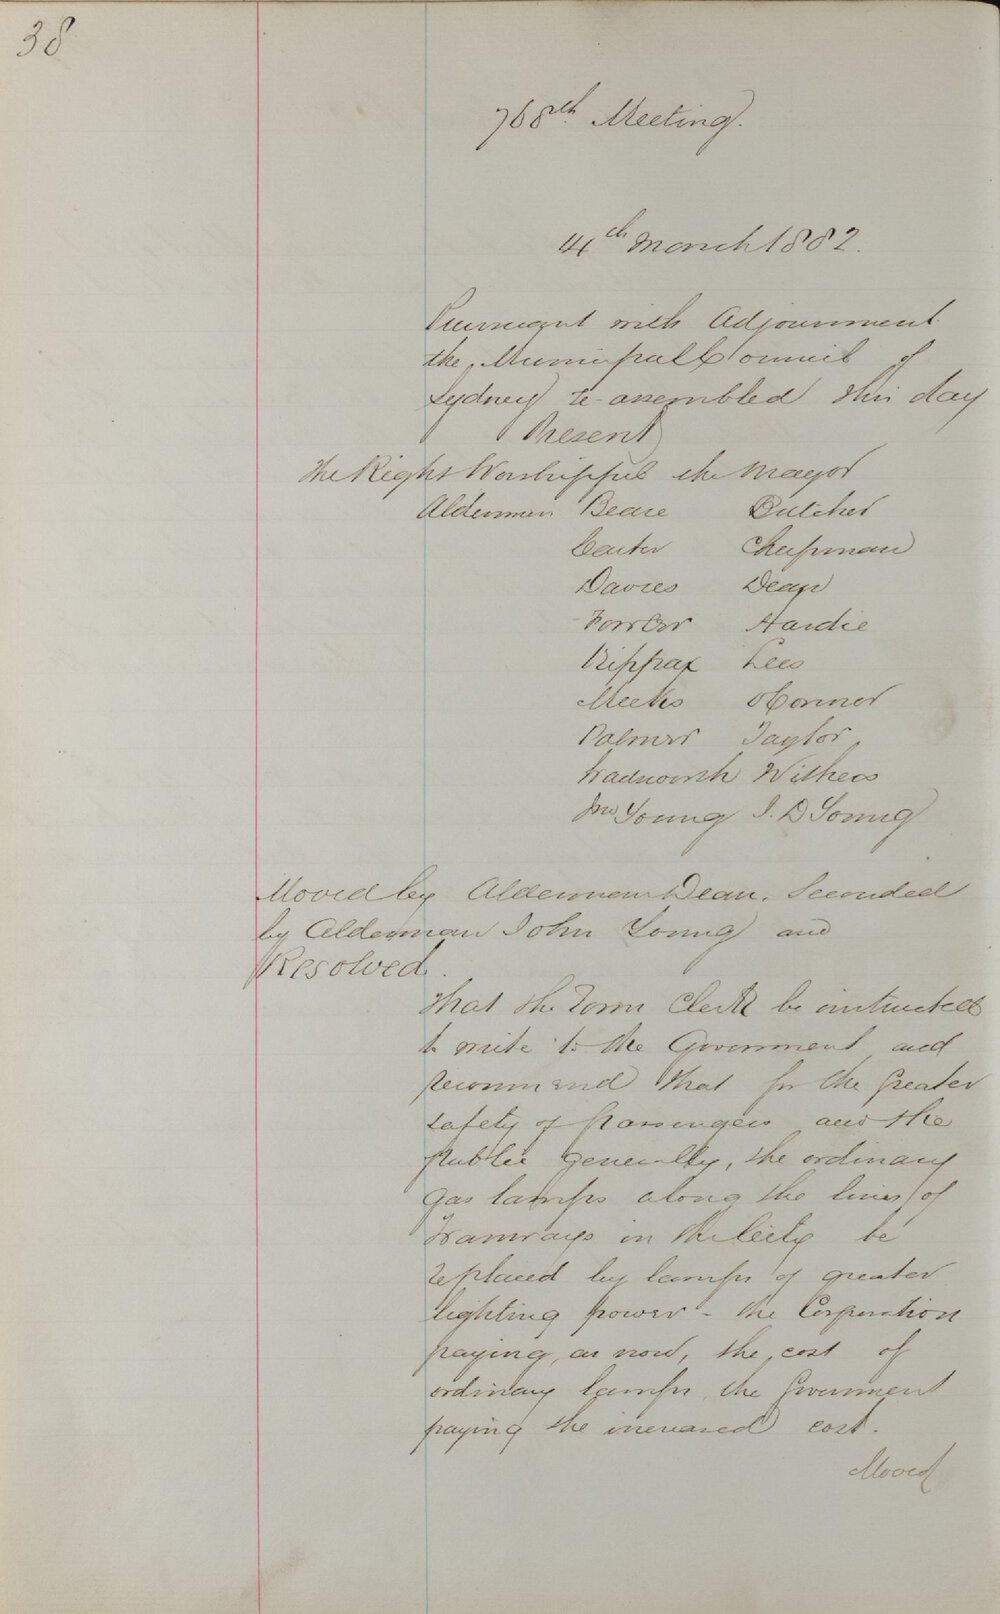 38
768th Meeting.
4th March 1882.
Pursuant with Adjournment
the Municipal Council of
Sydney re-assembled this day
Present
The Right Worshipful the Mayor
Aldermen Beare Butcher
Carter Chapman
Davies Dean
Fowler Hardie
Kippax Lees
Meeks O'Connor
Palmer Taylor
Wadsworth Withers
Jno Young J. D Young
Moved by Alderman Dean. Seconded
by Alderman John Young and
Resolved.
That the Town Clerk be instructed
to write to the Government and
recommend that for the greater
safety of passengers and the
public generally, the ordinary
gas lamps along the lines of
Tramways in the City be
replaced by lamps of greater
lighting power - the Corporation
paying, as now, the cost of
ordinary lamps, the Government
paying the increased cost.
Moved